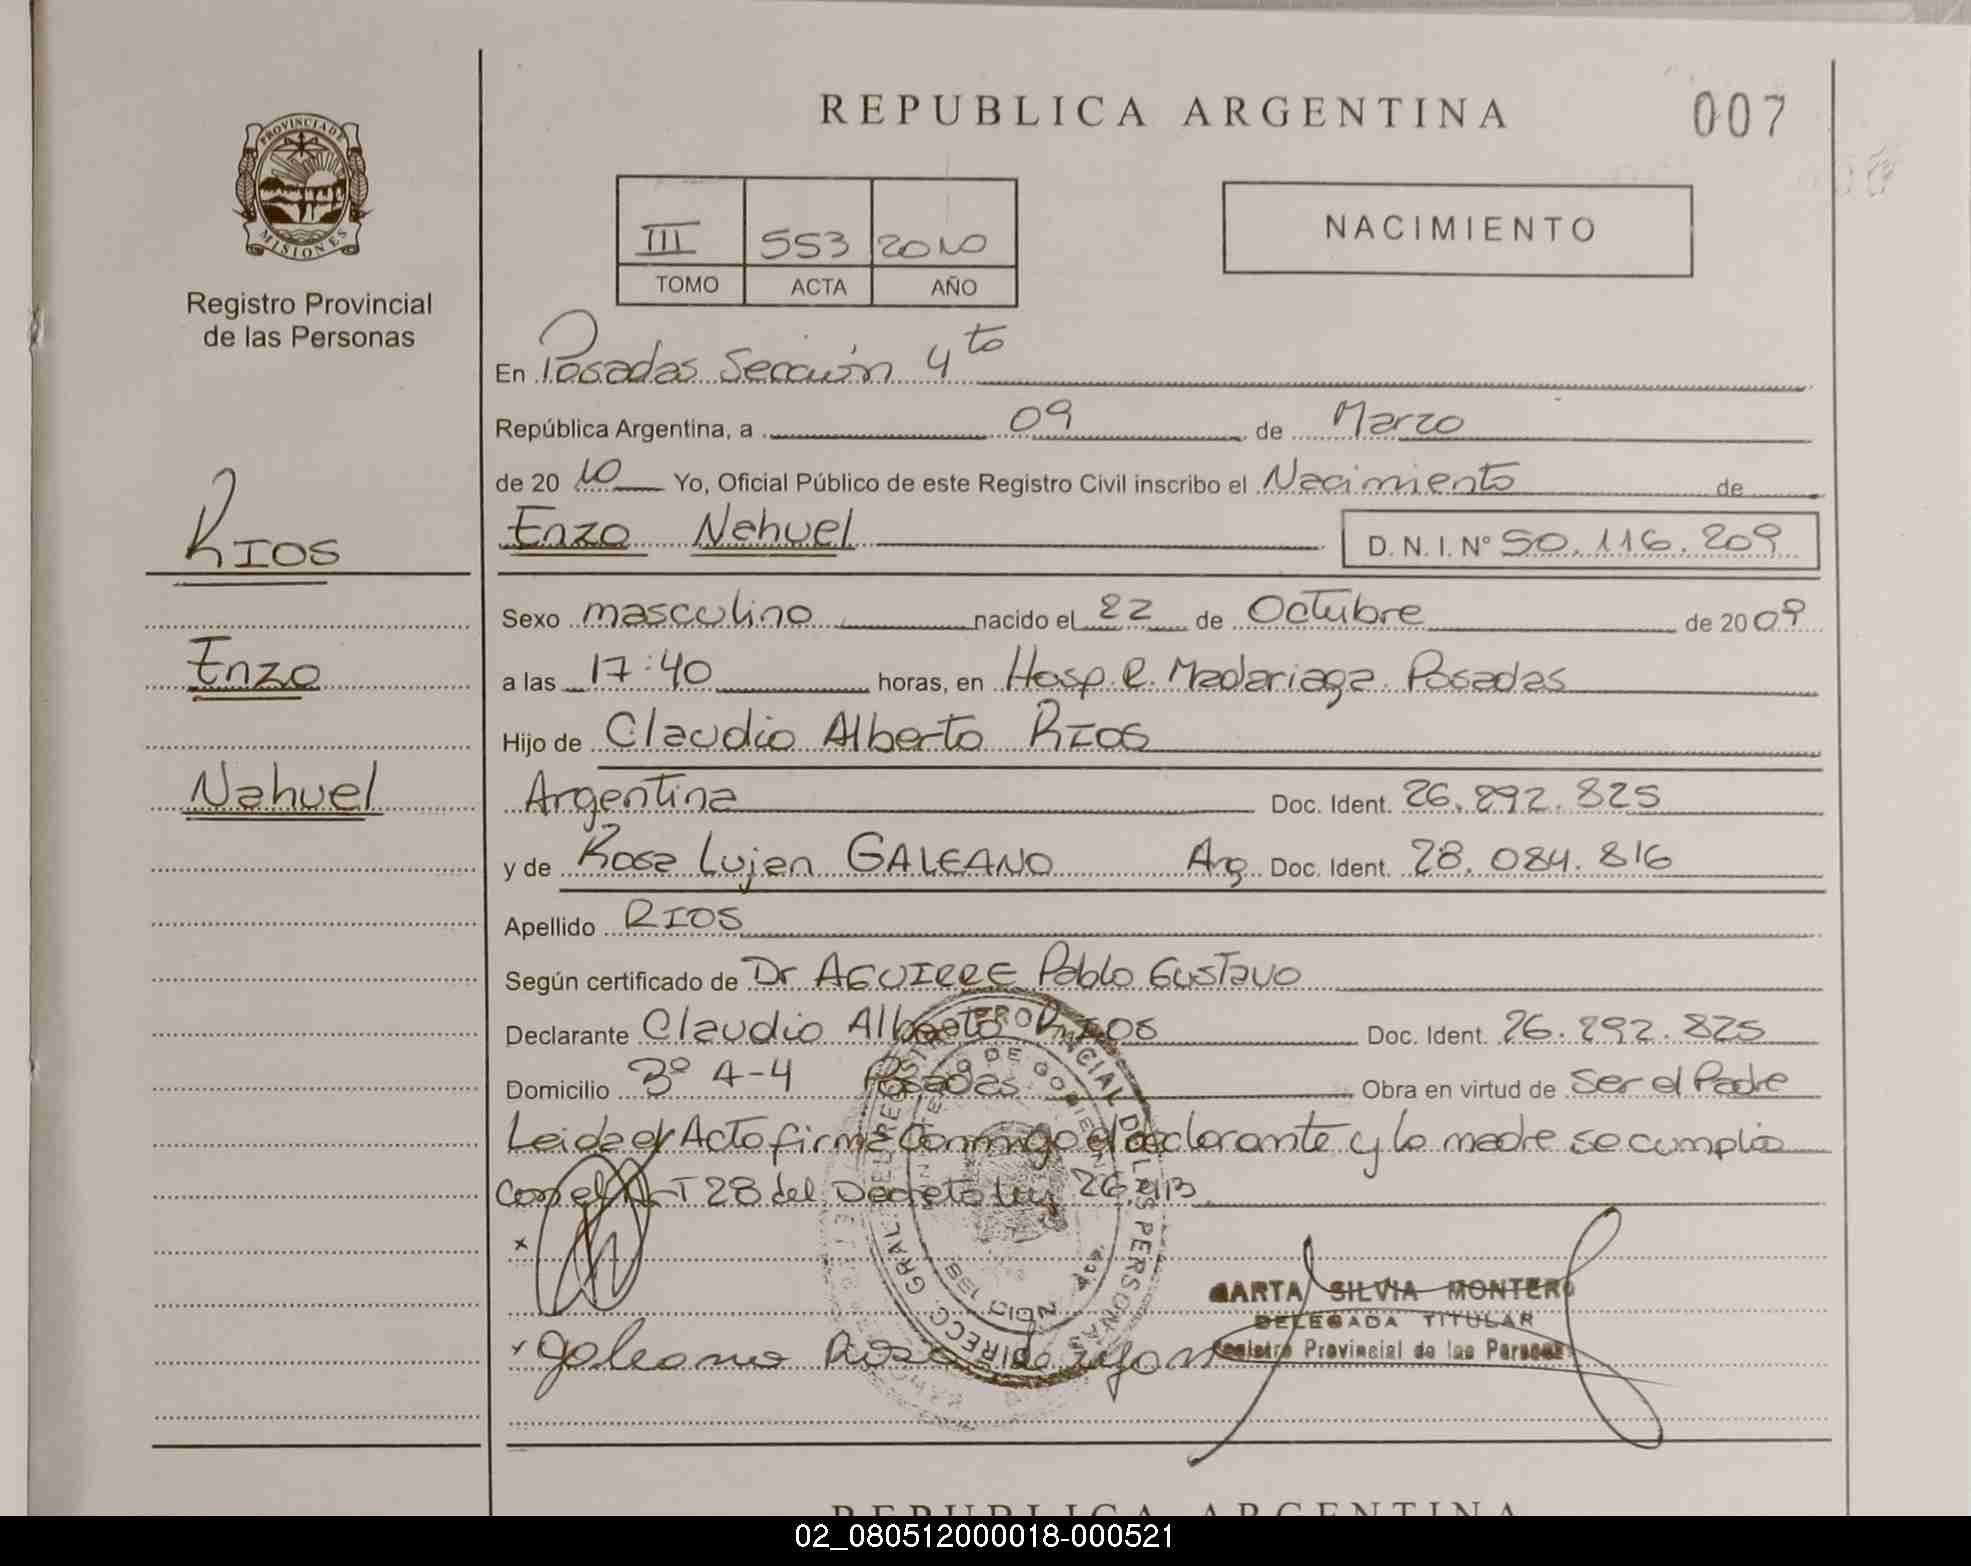 REPUBLICA ARGENTINA
007
PROVINCIA DE
MISIONES
Registro Provincial
de las Personas
III 553 2010
TOMO ACTA AÑO
NACIMIENTO
En Posadas Sección 4to
República Argentina, a 09 de Marzo
de 20 10 Yo, Oficial Público de este Registro Civil inscribo el Nacimiento de
Enzo Nahuel D. N. I. Nº 50.116.209
RIOS
Enzo
Nahuel
Sexo masculino nacido el 22 de Octubre de 2009
a las 17:40 horas, en Hosp. R. Madariaga. Posadas
Hijo de Claudio Alberto RIOS
Argentina Doc. Ident. 26.292.825
y de Rosa Lujan GALEANO Arg. Doc. Ident. 28.084.816
Apellido RIOS
Según certificado de Dr AGUIRRE Pablo Gustavo
Declarante Claudio Alberto RIOS Doc. Ident. 26.292.825
Domicilio 3º A-4 Posadas Obra en virtud de Ser el Padre
Leida el Acto firma conmigo el declarante y la madre se cumplio
con el ArT 28 del Decreto Ley 26.413
x
Galeano Rosa Lujan
MARTA SILVIA MONTERO
DELEGADA TITULAR
Registro Provincial de las Personas
REPUBLICA ARGENTINA
02_080512000018-000521